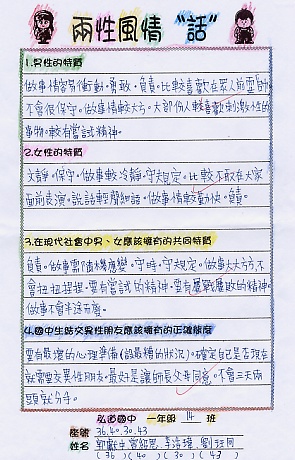 兩性風情“話”
1.男性的特質
做事情容易衝動。勇敢。負責。比較喜歡在眾人前
不會很保守。做事情較大方。大部份人較喜歡刺激性的
事物。較有嘗試精神。
2.女性的特質
文靜。保守。做事較冷靜。守規定。比較不敢在大家
面前表演。說話輕聲細語。做事情較勤快。負責。
3.在現代社會中男、女應該擁有的共同特質
負責。做事需隨機應變。守時。守規定。做事大大方方,不
會扭扭捏捏。要有嘗試的精神。要有屢戰屢敗的精神。
做事不會半途而廢。
4.國中生時交異性朋友應該擁有的正確態度
要有最壞的心理準備(設最糟的狀況)。確定自己是否現在
就需要交異性朋友。最好是讓師長父母同意。不會三天兩
頭就分手。
弘道國中 一年級 14 班
座號 36.40.30.43
姓名
(36) (40) (30) (43)